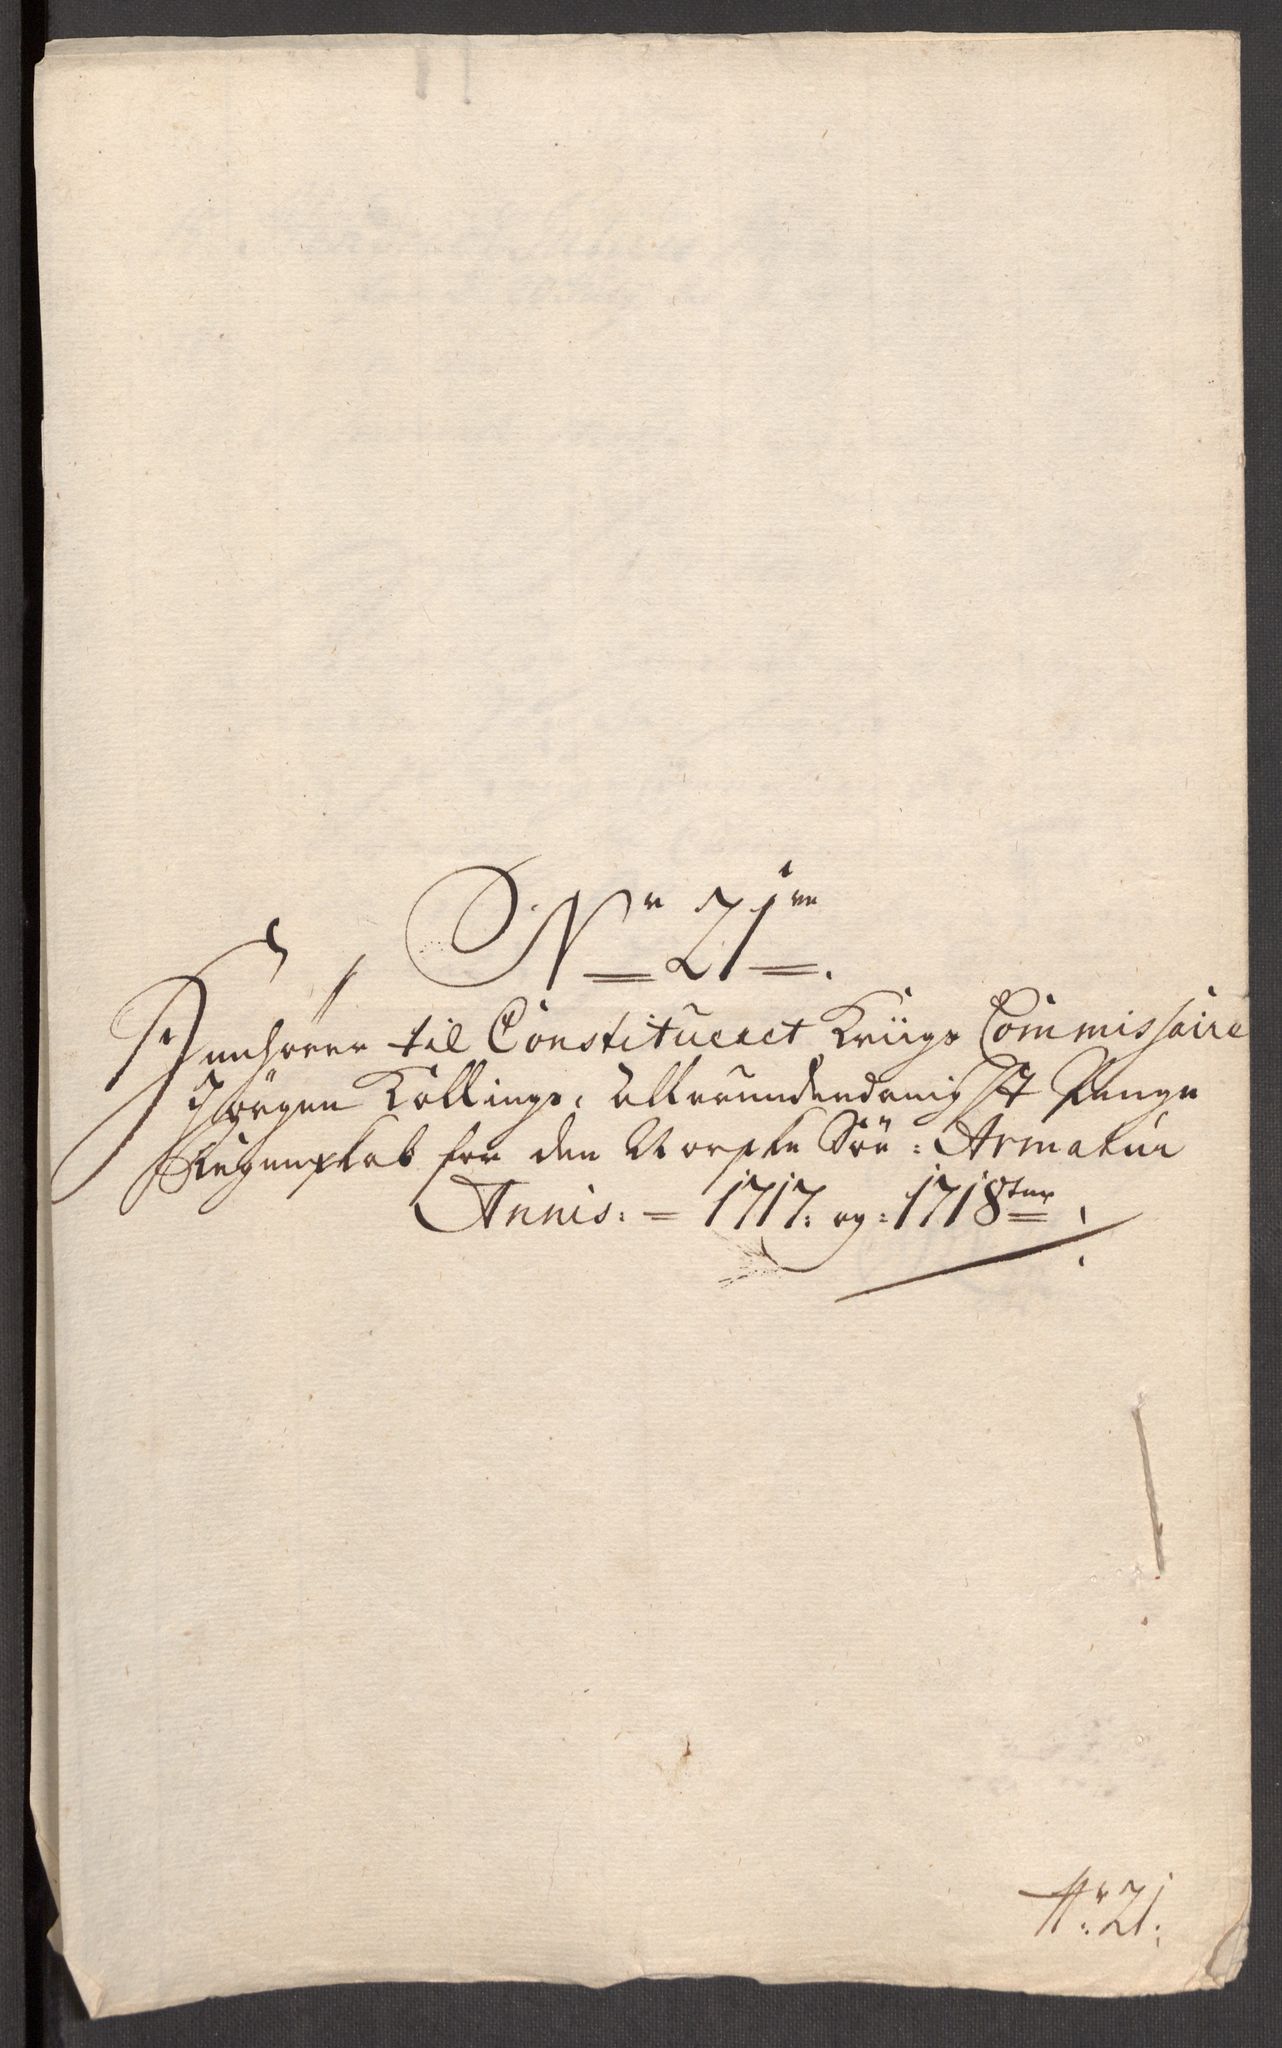 Nr 21de
Henhörer til Constitueret Kriigs Commissaire
Jörgen Kollings, Allerunderdanigst Penge
Regenskab for den Norske Söe: Armatur
Annis: = 1717: og: 1718ten
Nr: 21: